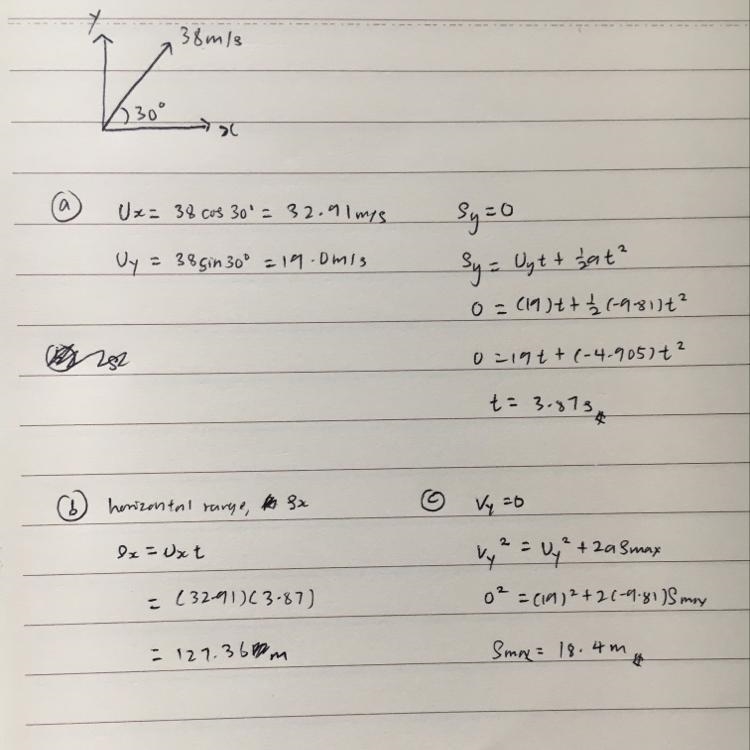 y
38m/s
30°
x
(a) Ux = 38 cos 30° = 32.91m/s
Uy = 38sin30° = 19.0m/s
Sy = 0
Sy = Uyt + ½at²
0 = (19)t + ½(-9.81)t²
0 = 19t + (-4.905)t²
t = 3.87s
(b) horizontal range, Sx
Sx = Uxt
= (32.91)(3.87)
= 127.36 m
(c) Vy = 0
Vy² = Uy² + 2aSmax
0² = (19)² + 2(-9.81)Smax
Smax = 18.4m